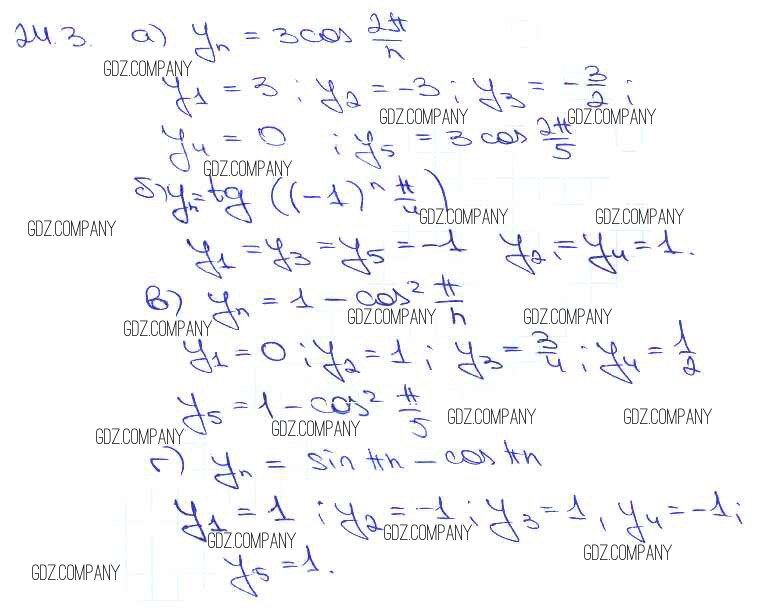 24.3. а) yₙ = 3cos 2π/n
GDZ.COMPANY
y₁ = 3 ; y₂ = -3 ; y₃ = -3/2 ;
GDZ.COMPANY GDZ.COMPANY
y₄ = 0 ; y₅ = 3 cos 2π/5
GDZ.COMPANY
б) yₙ = tg ((-1)ⁿ π/4)
GDZ.COMPANY GDZ.COMPANY GDZ.COMPANY
y₁ = y₃ = y₅ = -1 y₂ = y₄ = 1.
в) yₙ = 1 - cos² π/n
GDZ.COMPANY GDZ.COMPANY GDZ.COMPANY
y₁ = 0 ; y₂ = 1 ; y₃ = 3/4 ; y₄ = 1/2
y₅ = 1 - cos² π/5
GDZ.COMPANY GDZ.COMPANY GDZ.COMPANY GDZ.COMPANY
г) yₙ = sin πn - cos πn
y₁ = 1 ; y₂ = -1 ; y₃ = 1 , y₄ = -1 ;
GDZ.COMPANY GDZ.COMPANY GDZ.COMPANY
y₅ = 1.
GDZ.COMPANY